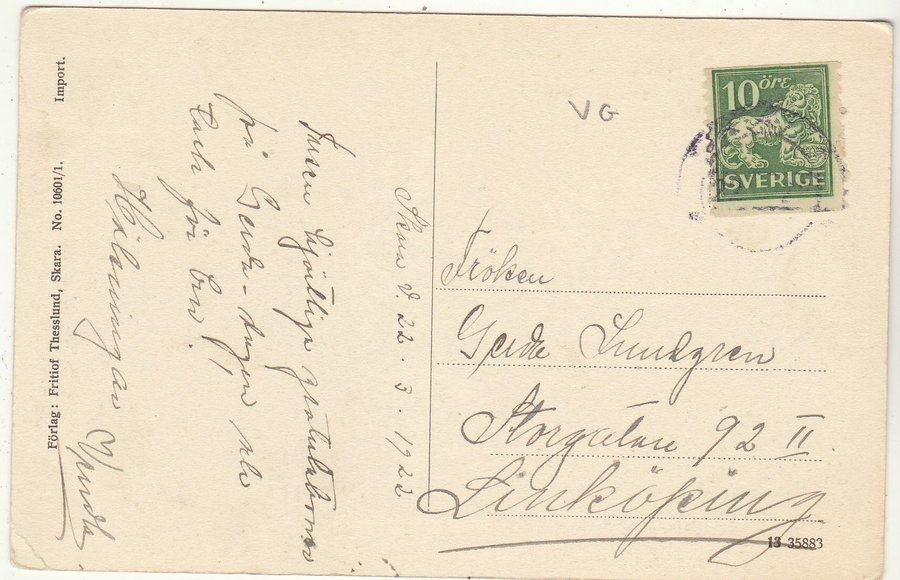 Förlag: Fritiof Thesslund, Skara. No. 10601/1. Import.
Skara d. 22. 3. 1922
Tusen hjärtliga gratulationer
på Gerda-dagen och
tack för brev.
Hälsningar
VG
10 öre
SVERIGE
Fröken
Gerda Lundgren
Storgatan 92 II
Linköping
13 35883